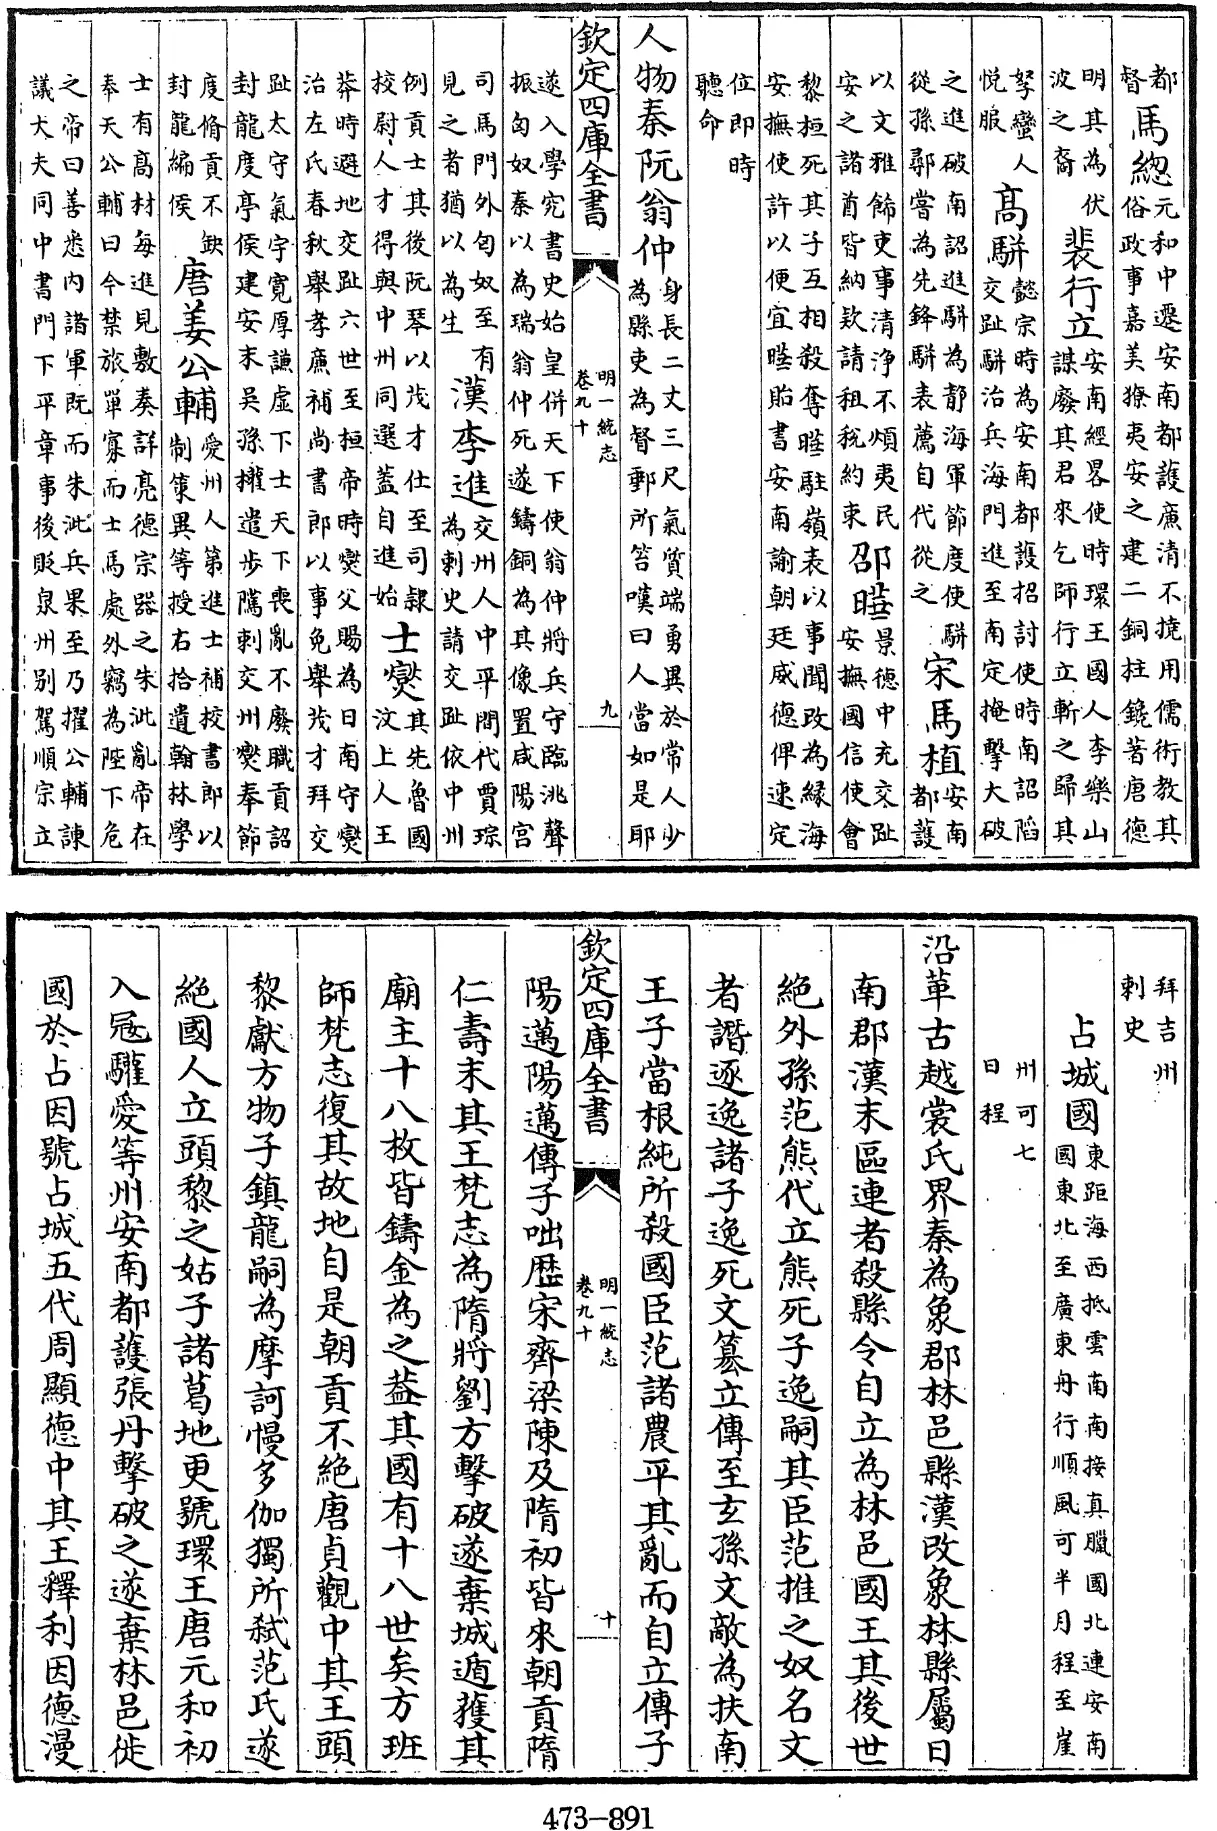 都督馬總元和中遷安南都護廉清不撓用儒術教其俗政事嘉美獠夷安之建二銅柱鑱著唐德
明其為伏波之裔裴行立安南經畧使時環王國人李樂山謀廢其君來乞師行立斬之歸其
孥蠻人悦服高駢懿宗時為安南都護招討使時南詔陷交趾駢治兵海門進至南定掩擊大破
之進破南詔進駢為静海軍節度使駢從孫鄩嘗為先鋒駢表薦自代從之宋馬植安南都護
以文雅飾吏事清淨不煩夷民安之諸酋皆納欵請租稅約束邵曄景德中充交趾安撫國信使會
黎桓死其子互相殺奪曄駐嶺表以事聞改為緣海安撫使許以便宜曄貽書安南諭朝廷威德俾速定
位即時聽命
人物秦阮翁仲身長二丈三尺氣質端勇異於常人少為縣吏為督郵所笞嘆曰人當如是耶
欽定四庫全書 明一統志 卷九十 九
遂入學究書史始皇併天下使翁仲將兵守臨洮聲振匈奴秦以為瑞翁仲死遂鑄銅為其像置咸陽宮
司馬門外匈奴至有見之者猶以為生漢李進交州人中平間代賈琮為刺史請交趾依中州
例貢士其後阮琴以茂才仕至司隸校尉人才得與中州同選蓋自進始士燮其先魯國汶上人王
莽時避地交趾六世至桓帝時燮父賜為日南守燮治左氏春秋舉孝廉補尚書郎以事免舉茂才拜交
趾太守氣宇寛厚謙虛下士天下喪亂不廢職貢詔封龍度亭侯建安末吳孫權遣步隲刺交州燮奉節
度脩貢不缺封龍編侯唐姜公輔愛州人第進士補校書郎以制策異等授右拾遺翰林學
士有髙材每進見敷奏詳亮德宗器之朱泚亂帝在奉天公輔曰今禁旅單寡而士馬處外竊為陛下危
之帝曰善悉内諸軍既而朱泚兵果至乃擢公輔諫議大夫同中書門下平章事後貶泉州別駕順宗立
拜吉州刺史
占城國東距海西抵雲南南接真臘國北連安南國東北至廣東舟行順風可半月程至崖
州可七日程
沿革古越裳氏界秦為象郡林邑縣漢改象林縣屬日
南郡漢末區連者殺縣令自立為林邑國王其後世
絶外孫范熊代立熊死子逸嗣其臣范推之奴名文
者譖逐逸諸子逸死文簒立傳至玄孫文敵為扶南
王子當根純所殺國臣范諸農平其亂而自立傳子
欽定四庫全書 明一統志 卷九十 十
陽邁陽邁傳子咄歴宋齊梁陳及隋初皆來朝貢隋
仁壽末其王梵志為隋將劉方擊破遂棄城遁獲其
廟主十八枚皆鑄金為之葢其國有十八世矣方班
師梵志復其故地自是朝貢不絶唐貞觀中其王頭
黎獻方物子鎮龍嗣為摩訶慢多伽獨所弑范氏遂
絶國人立頭黎之姑子諸葛地更號環王唐元和初
入冦驩愛等州安南都護張丹擊破之遂棄林邑徙
國於占因號占城五代周顯德中其王釋利因德漫
473-891